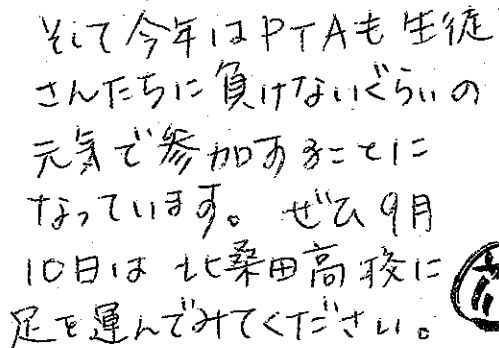 そして今年はPTAも生徒
さんたちに負けないぐらいの
元気で参加することに
なっています。ぜひ9月
10日は北桑田高校に
足を運んでみてください。